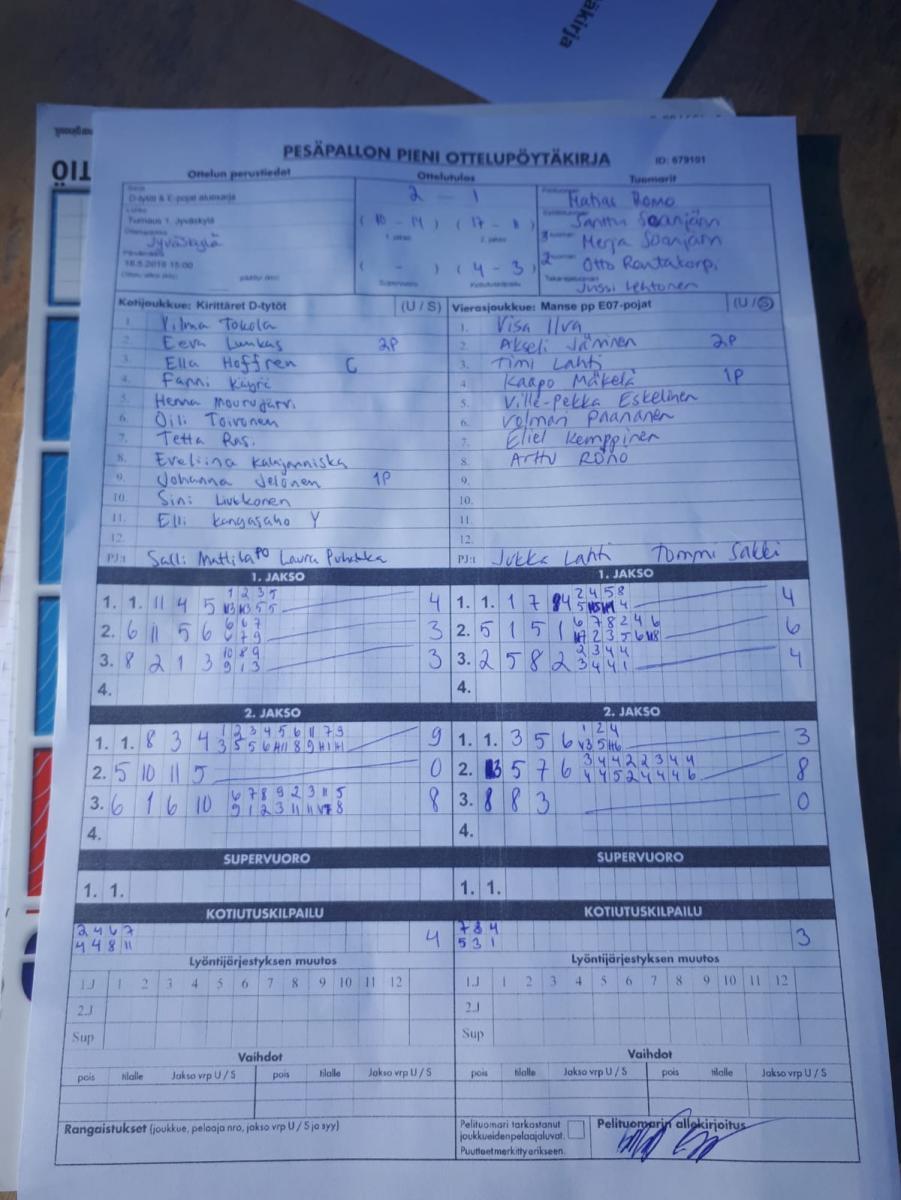 äkirja
PESÄPALLON PIENI OTTELUPÖYTÄKIRJA ID: 679101
Ottelun perustiedot Ottelutulos Tuomarit
D-tytöt & E-pojat aluesarja
Turnaus 1, Jyväskylä
Jyväskylä
18.5.2018 15:00
2 - 1
(10 - 14) (17 - 11)
1. jakso 2. jakso
( - ) (4 - 3)
Supervuoro Kotiutuskilpailu
Matias Romo
Santtu Soanjärvi
3 Merja Soanjärvi
2 Otto Rantakorpi
Jussi Lehtonen
Kotijoukkue: Kirittäret D-tytöt (U / S) Vierasjoukkue: Manse pp E07-pojat (U / S)
1. Vilma Tokola 1. Visa Ilva
2. Eeva 2P 2. Akseli Jäminen 2P
3. Ella Hoffren C 3. Timi Lahti
4. Fanni Käyrä 4. Kaapo Mäkelä 1P
5. Henna Mourujärvi 5. Ville-Pekka Eskelinen
6. Oili Toivonen 6. Volmari Paananen
7. Tetta Ras. 7. Eliel Kemppinen
8. Eveliina 8. Arttu Rönö
9. Johanna Jelonen 1P 9.
10. Sini Liukkonen 10.
11. Elli Kangasaho Y 11.
12. 12.
PJ:t Salli Mattila PO Laura PJ:t Jukka Lahti Tommi Sakki
1. JAKSO 1. JAKSO
1 2 3 5 2 4 5 8
1. 1. 11 4 5 5 5 4 1. 1. 1 7 4 5 4 4
6 6 7 6 7 8 2 4 6
2. 6 11 5 6 6 7 9 3 2. 5 1 5 1 2 3 5 6 6
10 8 9 2 3 4 4
3. 8 2 1 3 9 1 3 3 3. 2 5 8 2 3 4 4 1 4
4. 4.
2. JAKSO 2. JAKSO
1 2 3 4 5 6 11 7 3 1 2 4
1. 1. 8 3 4 3 5 5 6 8 9 9 1. 1. 3 5 6 5 3
3 4 4 2 2 3 4 4
2. 5 10 11 5 0 2. 3 5 7 6 4 4 5 2 4 4 4 6 8
6 7 8 9 2 3 11 5
3. 6 1 6 10 9 1 2 3 11 11 8 8 3. 8 8 3 0
4. 4.
SUPERVUORO SUPERVUORO
1. 1. 1. 1.
KOTIUTUSKILPAILU KOTIUTUSKILPAILU
2 4 6 7 7 8 4
4 4 8 11 4 5 3 1 3
Lyöntijärjestyksen muutos Lyöntijärjestyksen muutos
1.J 1 2 3 4 5 6 7 8 9 10 11 12 1.J 1 2 3 4 5 6 7 8 9 10 11 12
2.J 2.J
Sup Sup
Vaihdot Vaihdot
pois tilalle Jakso vrp U / S pois tilalle Jakso vrp U / S pois tilalle Jakso vrp U / S pois tilalle Jakso vrp U / S
Rangaistukset (joukkue, pelaaja nro, jakso vrp U / S ja syy)
Pelituomari tarkastanut
joukkueiden pelaajaluvat.
Puutteet merkitty erikseen.
Pelituomarin allekirjoitus